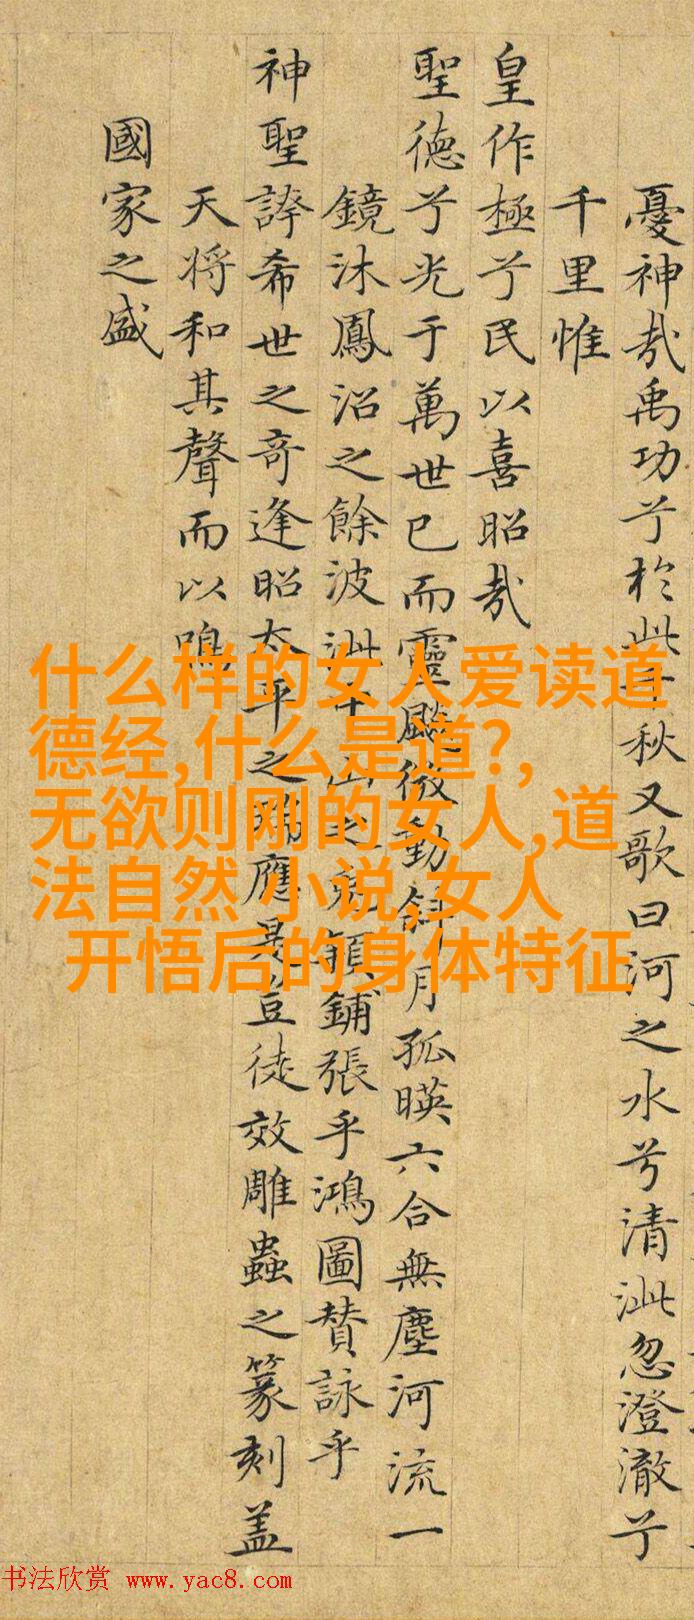 憂神哉禹功兮於此千秋又歌曰河之水兮清泚忽澄澈兮
千里惟
皇作極兮民以喜昭哉
聖德兮光于萬世已而靈飈微動斜月孤暎六合無塵河流一
鏡沐鳳沼之餘波洲十山之兔穎鋪張乎鴻圖贊詠乎
神聖誇希世之奇逢昭太平之瑞應是豈徒效雕蟲之篆刻盖
天将和其聲而以鳴
國家之盛
什么样的女人爱读道
德经,什么是道?,
无欲则刚的女人,道
法自然 小说,女人
开悟后的身体特征
书法欣赏 www.yac8.com